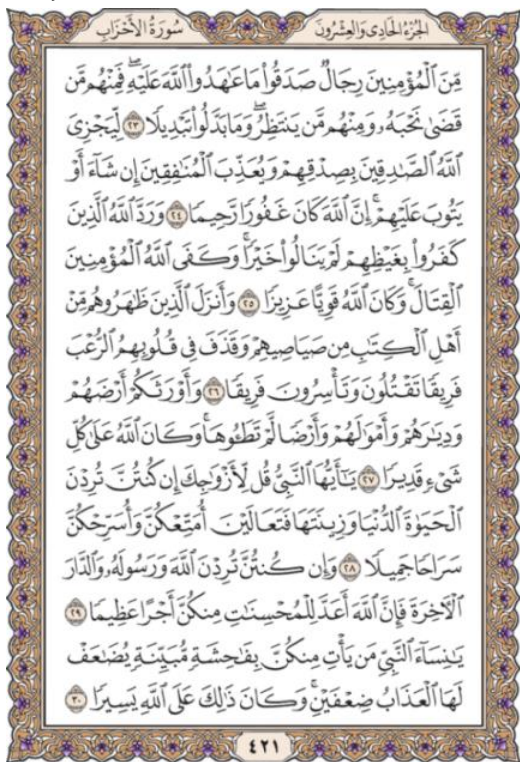 الجزء الحادي والعشرون
سورة الأحزاب
مِّنَ ٱلْمُؤْمِنِينَ رِجَالٌ صَدَقُوا۟ مَا عَٰهَدُوا۟ ٱللَّهَ عَلَيْهِ ۖ فَمِنْهُم مَّن
قَضَىٰ نَحْبَهُۥ وَمِنْهُم مَّن يَنتَظِرُ ۖ وَمَا بَدَّلُوا۟ تَبْدِيلًا ٢٣ لِّيَجْزِىَ
ٱللَّهُ ٱلصَّٰدِقِينَ بِصِدْقِهِمْ وَيُعَذِّبَ ٱلْمُنَٰفِقِينَ إِن شَآءَ أَوْ
يَتُوبَ عَلَيْهِمْ ۚ إِنَّ ٱللَّهَ كَانَ غَفُورًا رَّحِيمًا ٢٤ وَرَدَّ ٱللَّهُ ٱلَّذِينَ
كَفَرُوا۟ بِغَيْظِهِمْ لَمْ يَنَالُوا۟ خَيْرًا ۚ وَكَفَى ٱللَّهُ ٱلْمُؤْمِنِينَ
ٱلْقِتَالَ ۚ وَكَانَ ٱللَّهُ قَوِيًّا عَزِيزًا ٢٥ وَأَنزَلَ ٱلَّذِينَ ظَٰهَرُوهُم مِّنْ
أَهْلِ ٱلْكِتَٰبِ مِن صَيَاصِيهِمْ وَقَذَفَ فِى قُلُوبِهِمُ ٱلرُّعْبَ
فَرِيقًا تَقْتُلُونَ وَتَأْسِرُونَ فَرِيقًا ٢٦ وَأَوْرَثَكُمْ أَرْضَهُمْ
وَدِيَٰرَهُمْ وَأَمْوَٰلَهُمْ وَأَرْضًا لَّمْ تَطَـُٔوهَا ۚ وَكَانَ ٱللَّهُ عَلَىٰ كُلِّ
شَىْءٍ قَدِيرًا ٢٧ يَٰٓأَيُّهَا ٱلنَّبِىُّ قُل لِّأَزْوَٰجِكَ إِن كُنتُنَّ تُرِدْنَ
ٱلْحَيَوٰةَ ٱلدُّنْيَا وَزِينَتَهَا فَتَعَالَيْنَ أُمَتِّعْكُنَّ وَأُسَرِّحْكُنَّ
سَرَاحًا جَمِيلًا ٢٨ وَإِن كُنتُنَّ تُرِدْنَ ٱللَّهَ وَرَسُولَهُۥ وَٱلدَّارَ
ٱلْءَاخِرَةَ فَإِنَّ ٱللَّهَ أَعَدَّ لِلْمُحْسِنَٰتِ مِنكُنَّ أَجْرًا عَظِيمًا ٢٩
يَٰنِسَآءَ ٱلنَّبِىِّ مَن يَأْتِ مِنكُنَّ بِفَٰحِشَةٍ مُّبَيِّنَةٍ يُضَٰعَفْ
لَهَا ٱلْعَذَابُ ضِعْفَيْنِ ۚ وَكَانَ ذَٰلِكَ عَلَى ٱللَّهِ يَسِيرًا ٣٠
٤٢١